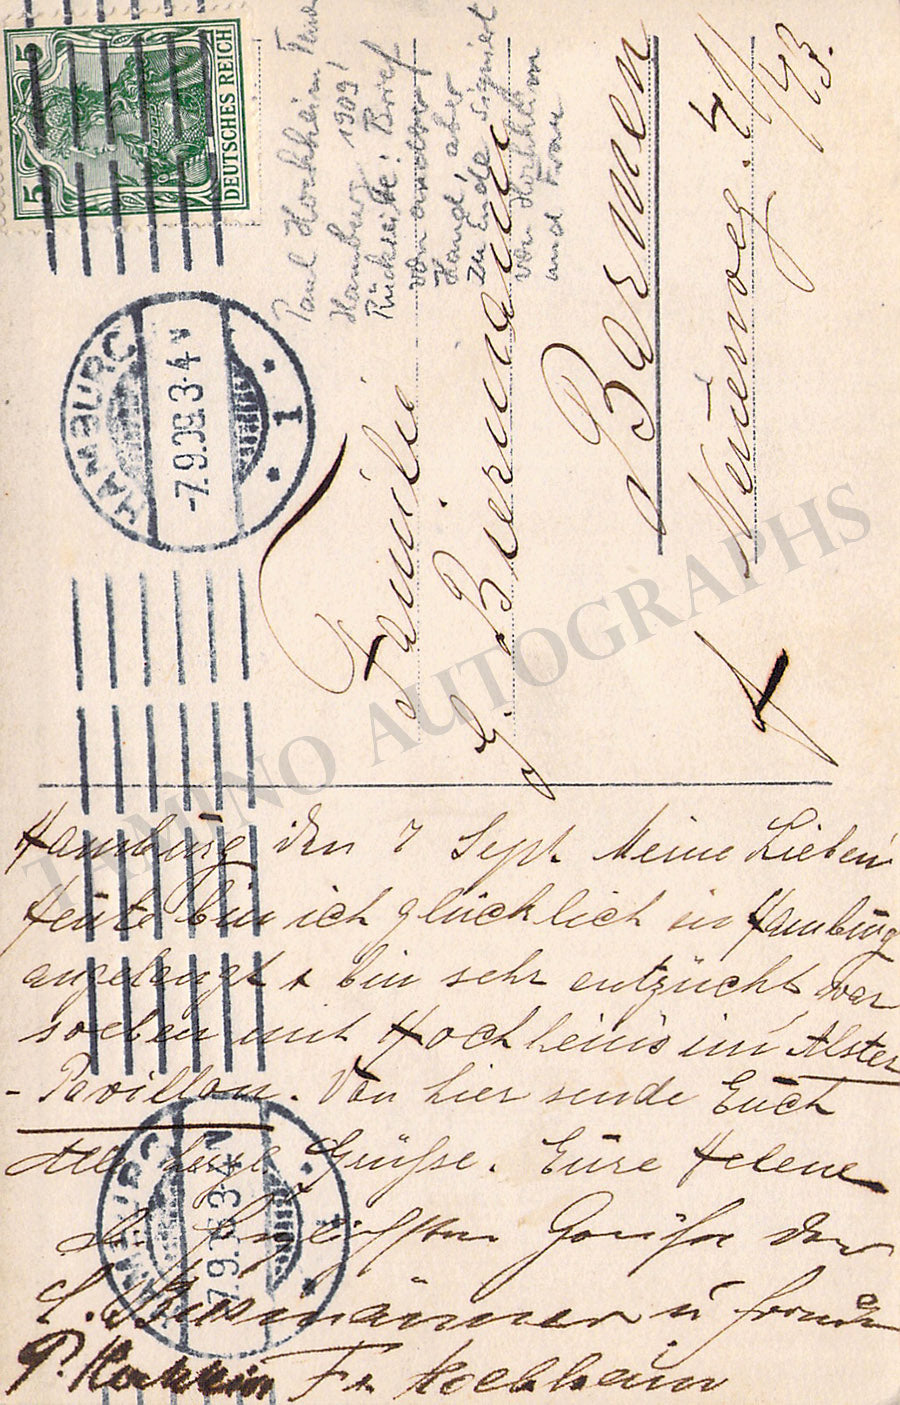 DEUTSCHES REICH
5 5
Paul Hochheim
Hamburg 1909!
Rückseite: Brief
von anderer
Hand, aber
zu Ende signiert
von Hochheim
und Frau
HAMBURG
7.9.09.3-4 N
* 1 *
Familie
G. Biermann
Barmen
Neuerweg
TAMINO AUTOGRAPHS
Hamburg den 7 Sept. Meine Lieben
Heute bin ich glücklich in Hamburg
angelangt & bin sehr entzückt, war
soeben mit Hochheims im Alster
-Pavillon. Von hier sende Euch
allen herzl. Grüße. Eure Helene
Die herzlichsten Grüße der
L. u Freunde
P. Hochheim Fr. Hochheim
HAMBURG
7.9.09.3-4 N
* 1 *